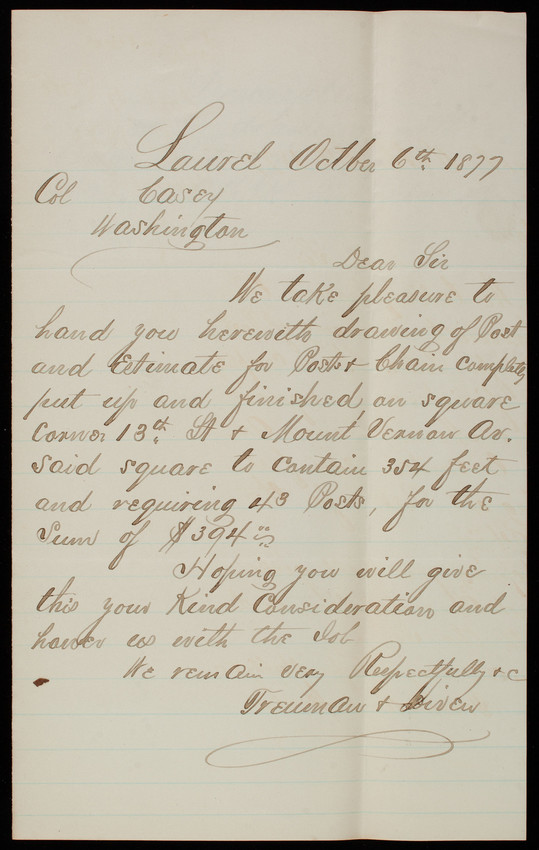 Laurel Octber 6th 1877
Col Casey
Washington
Dear Sir
We take pleasure to
hand you herewith drawing of Post
and Estimate for Post & Chain completly
put up and finished, on square
corner 13th St & Mount Vernon Av.
Said square to contain 354 feet
and requiring 43 Posts, for the
Sum of $394
Hoping you will give
this your Kind Consideration and
honer us with the Job
We remain very Respectfully & c
Treuman &